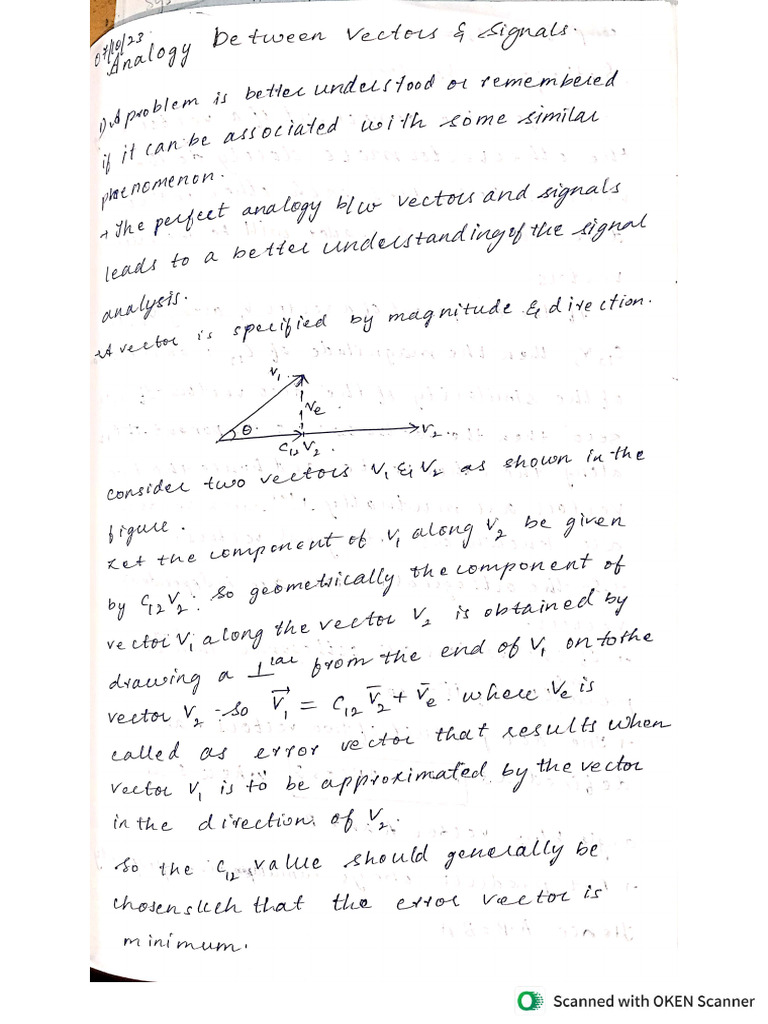 07/10/23
Analogy between vectors & signals.
1) A problem is better understood or remembered
if it can be associated with some similar
phenomenon.
+ The perfect analogy b/w vectors and signals
leads to a better understanding of the signal
analysis.
A vector is specified by magnitude & direction.
V₁
Ve
θ
V₂
C₁₂V₂
consider two vectors V₁ & V₂ as shown in the
figure.
Let the component of V₁ along V₂ be given
by C₁₂V₂. So geometrically the component of
vector V₁ along the vector V₂ is obtained by
drawing a ⊥lar from the end of V₁ on to the
vector V₂. So V⃗₁ = C₁₂ V̄₂ + V̄e where Ve is
called as error vector that results when
vector V₁ is to be approximated by the vector
in the direction of V₂.
So the C₁₂ value should generally be
chosen such that the error vector is
minimum.
Scanned with OKEN Scanner